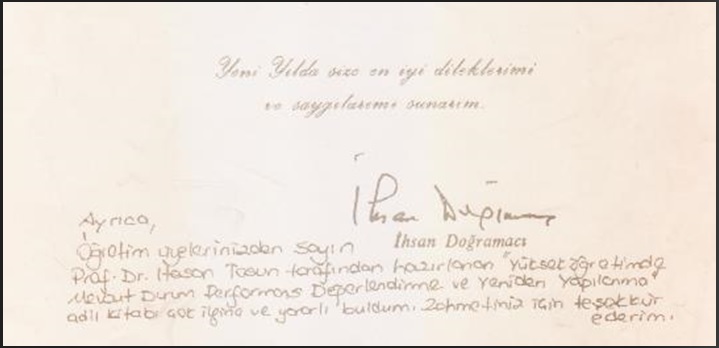 Yeni Yılda size en iyi dileklerimi
ve saygılarımı sunarım.
İhsan Doğramacı
İhsan Doğramacı
Ayrıca,
Öğretim üyelerinizden sayın
Prof. Dr. Hasan Tosun tarafından hazırlanan "Yükseköğretimde
Mevcut Durum Performans Değerlendirme ve Yeniden Yapılanma"
adlı kitabı çok ilginç ve yararlı buldum. Zahmetiniz için teşekkür
ederim.